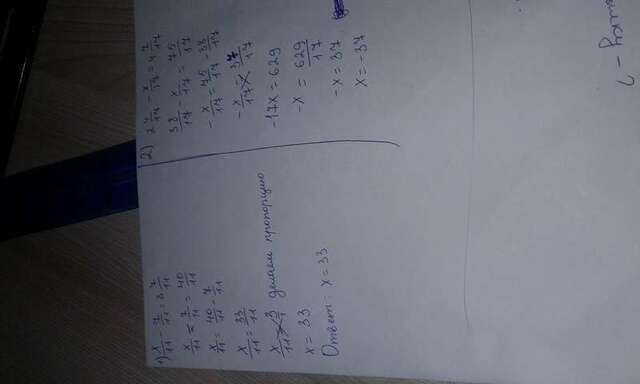 1) x/11 - 7/11 = 3 7/11
x/11 - 7/11 = 40/11
x/11 = 40/11 - 7/11
x/11 = 33/11
x/11 = 3/1 делаем пропорцию
x = 33
Ответ: x = 33
2) 2 4/17 - x/17 = 4 7/17
38/17 - x/17 = 75/17
- x/17 = 75/17 - 38/17
- x/17 = 37/17
-17x = 629
-x = 629/17
-x = 37
x = -37